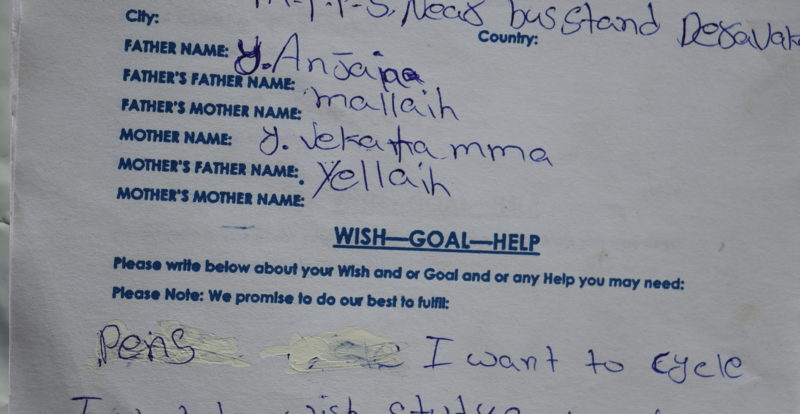 City: M.P.P.S. Near bus stand
Country:
FATHER NAME: Y. Anjaiaa
FATHER'S FATHER NAME: mallaih
FATHER'S MOTHER NAME:
MOTHER NAME: y. vekatamma
MOTHER'S FATHER NAME: Yellaih
MOTHER'S MOTHER NAME:
WISH—GOAL—HELP
Please write below about your Wish and or Goal and or any Help you may need:
Please Note: We promise to do our best to fulfil:
Pens I want to cycle